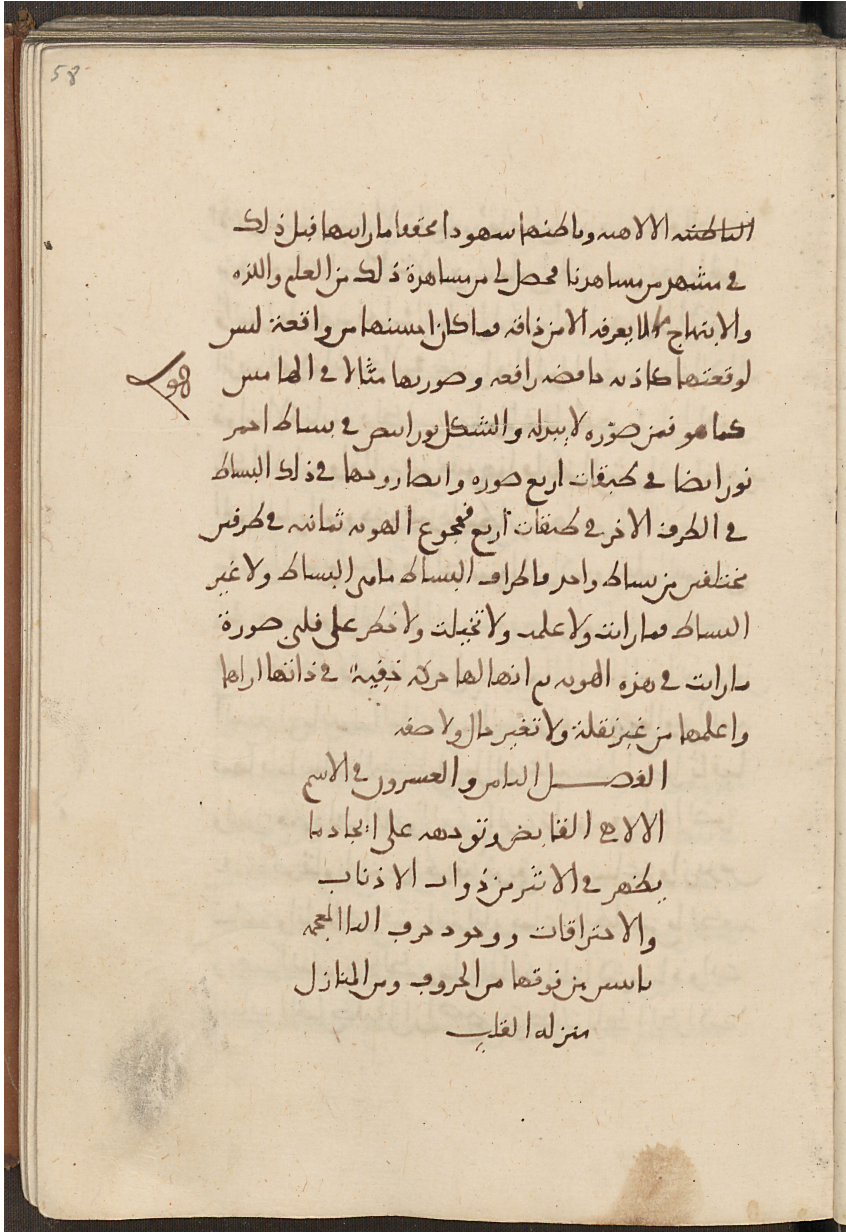 58
الباطنة الالاهية وباطنها شهودا محققا ما رايتها قبل ذلك
في مشهد من مشاهدنا فحصل لي من مشاهدة ذلك من العلم واللذة
والابتهاج ما لا يعرفه الا من ذاقه فما كان احسنها من واقعة ليس
لوقعتها كاذبة خافضة رافعة وصورتها مثالا في الهامش
كما هو فمن صوّره لا يبدله والشكل نور ابيض في بساط احمر
نور ايضا في طبقات اربع صورة وايضا روحها في ذلك البساط
في الطرف الاخر في طبقات اربع فمجموع الهوية ثمانية في طرفين
مختلفين من بساط واحد فاطراف البساط ما هي البساط ولا غير
البساط فما رايت ولا علمت ولا تخيلت ولا خطر على قلبي صورة
ما رايت في هذه الهوية ثم انها لها حركة خفية في ذاتها اراها
واعلمها من غير نقلة ولا تغير حال ولا صفة
الفصل الثامن والعشرون في الاسم
الالاهي القابض وتوجهه على ايجاد ما
يظهر في الاثير من ذوات الاذناب
والاحتراقات ووجود حرف التا المعجمة
باثنتين من فوقها من الحروف ومن المنازل
منزلة القلب